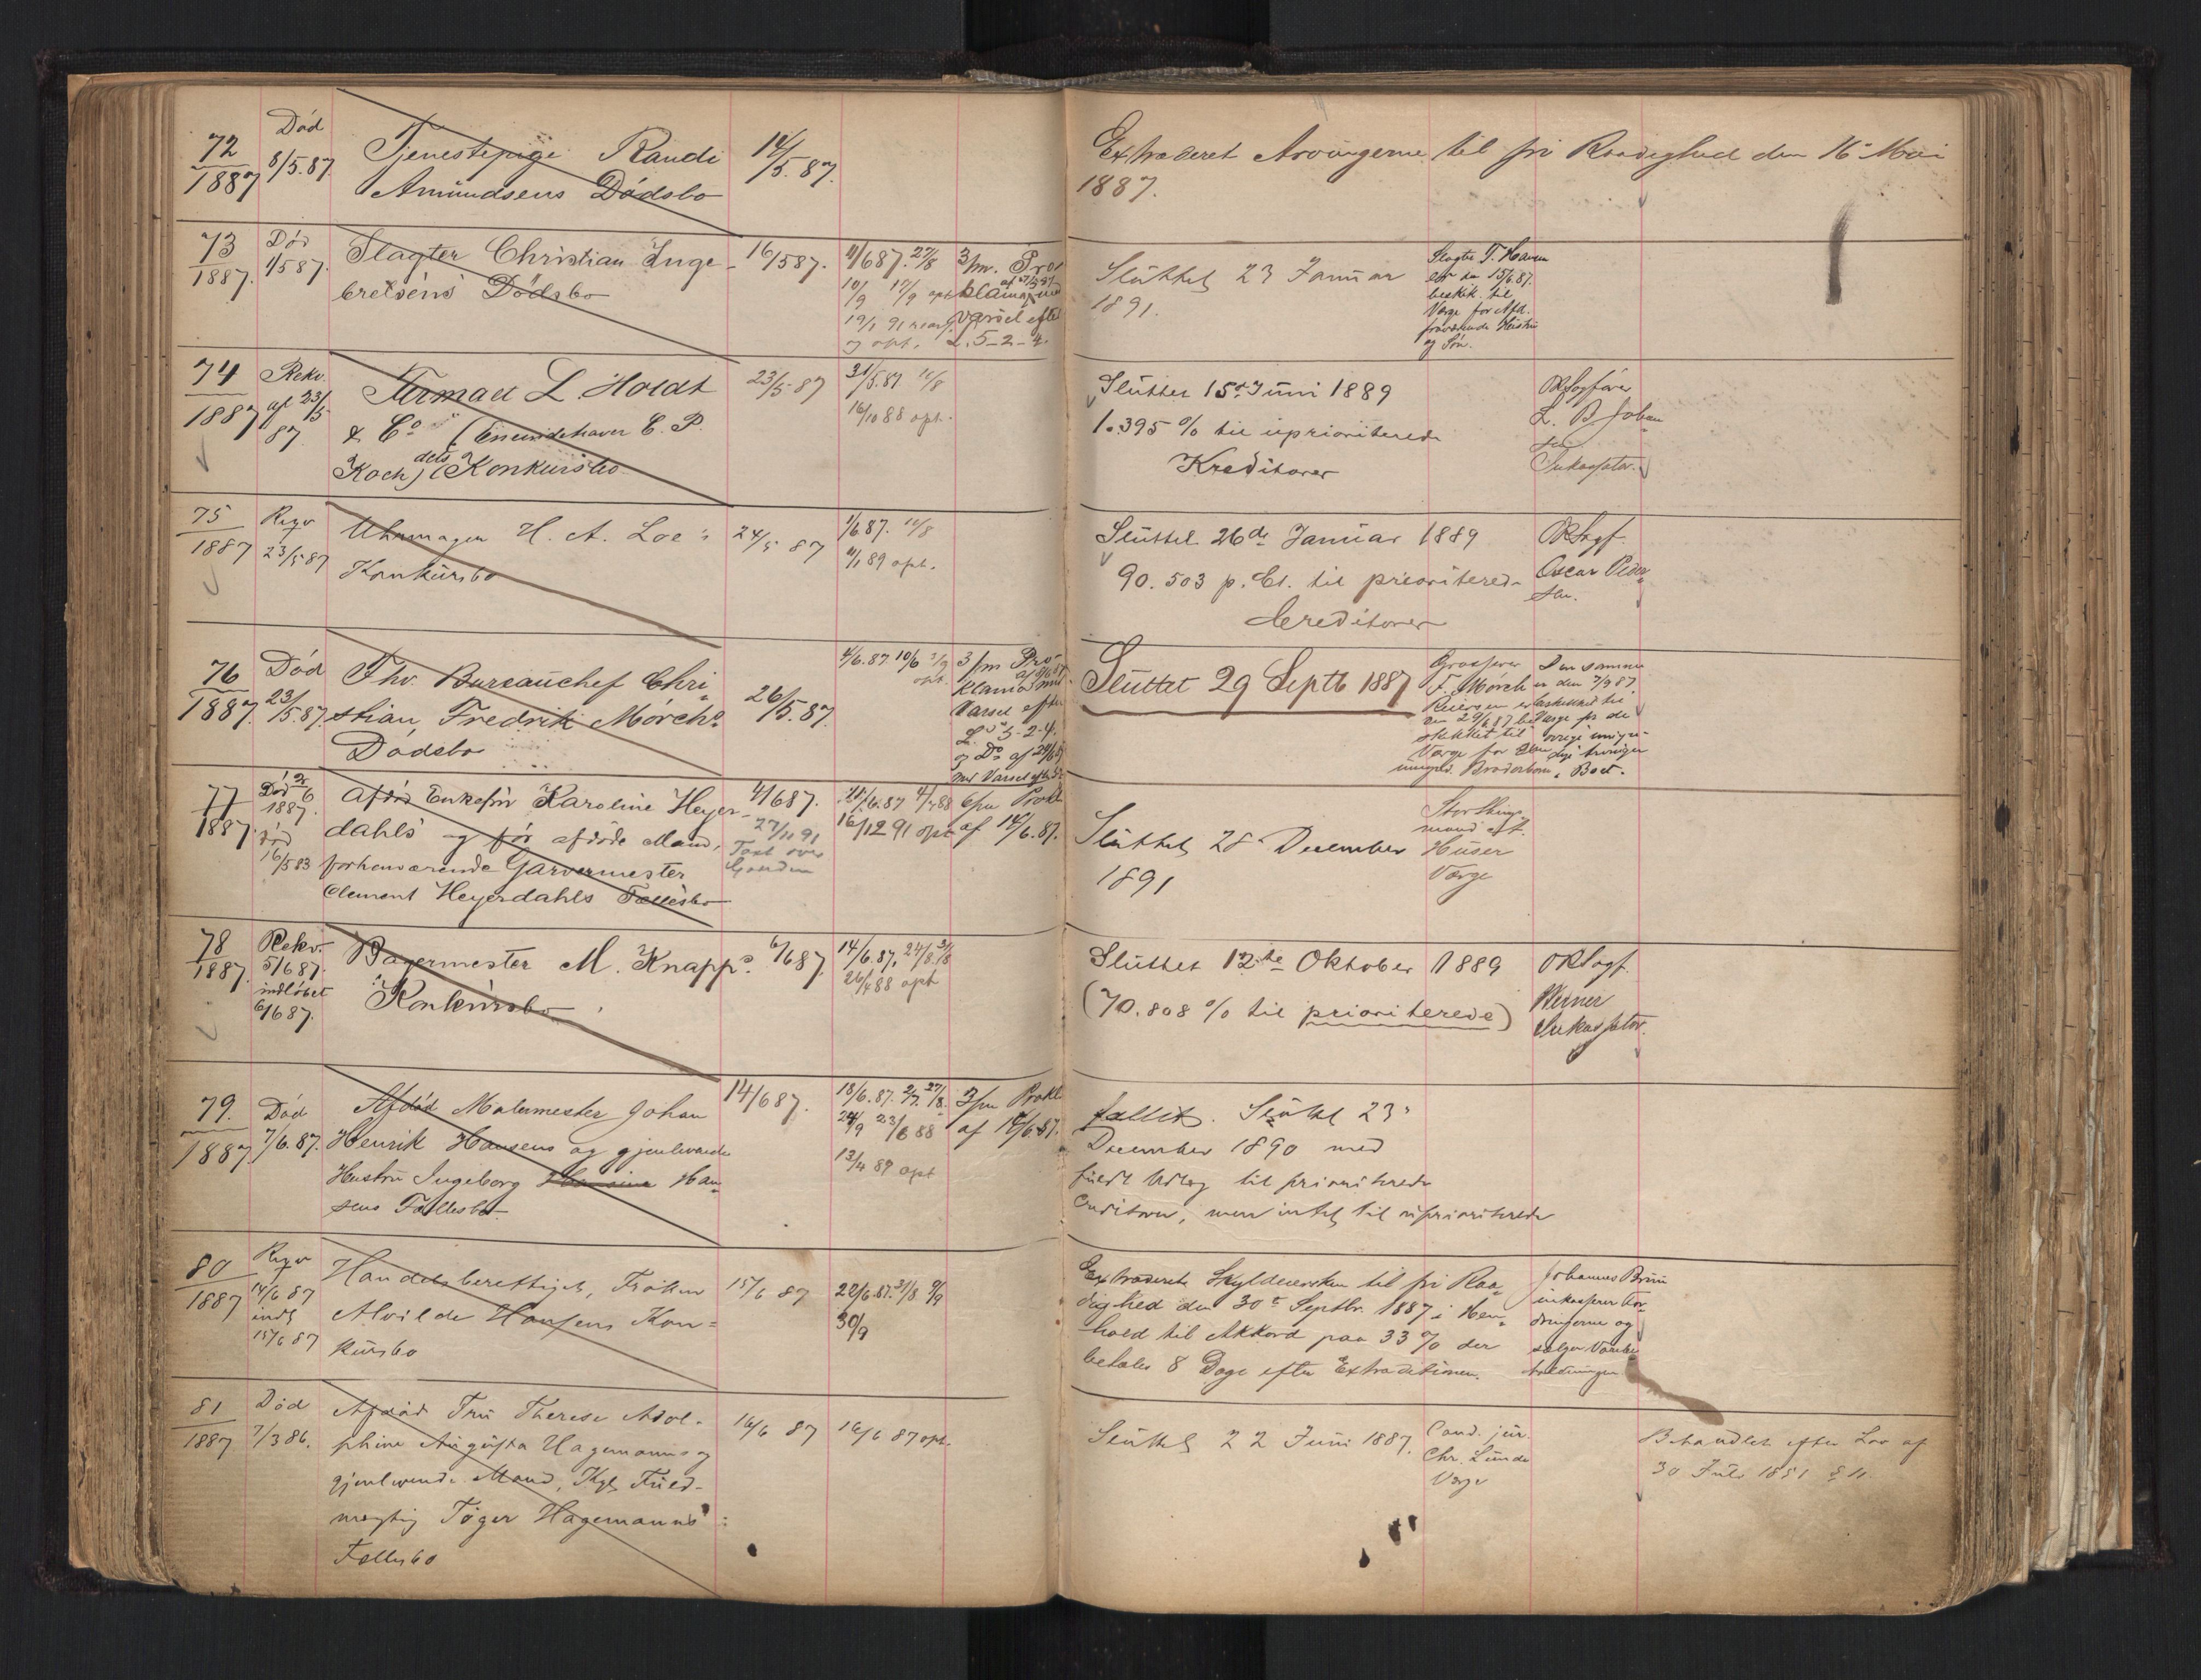 72
1887
Død
8/5.87
Tjenestepige Randi
Amundsens Dødsbo
14/5.87.
Extraderet Arvingerne til fri Raadighed den 16de Mai
1887.
73
1887.
Død
1/587.
Slagter Christian Inge-
bretsens Dødsbo
16/587.
11/687. 27/8
10/9 17/9 opt
19/1 91
og opt.
3/m. Pro-
klama med
Varsel efter
L. 5-2-4.
Sluttet 23 Januar
1891.
Slagter T. Hansen
er den 15/6.87.
beskik. til
Værge for Afd.
fraværende Hustru
og Søn.
74
1887
Rekv.
af 23/5
87.
Firmaet L. Holdt
& Co (Eneindehaver C. P.
Koch) dets Konkursbo
23/5 87
31/5.87 11/8
16/10 88 opt.
Sluttet 15de Juni 1889
1.395 % til uprioriterede
Kreditorer
ORSagfører
L. B. Johan
sen
Inkassator.
75
1887
Reqv
23/5 87
Uhrmager H. A. Loe's
Konkursbo
24/5 87
1/6.87. 11/8
11/1 89 opt.
Sluttet 26de Januar 1889
90.503 p. Ct. til prioriterede
Creditorer
ORSagf.
Oscar Peder
sen.
76
1887.
Død
23/5.87.
Fhv. Bureauchef Chri-
stian Fredrik Mørchs
Dødsbo
26/5.87.
4/6.87 10/6
opt.
3/m Pro-
klama med
Varsel efter
L. 5-2-4.
og Do af 24/6 87
med Varsel efter
Sluttet 29 Septb 1887
Grosserer
F. Mørch
den 29/6 87 be
skikket til
Værge for
umynd. Broderbørn.
Den samme
er den 7/9 87.
beskikket til
Værge for de
øvrige umyn-
dige Arvinger
i Boet.
77
1887.
Død 2/6
1887.
død
16/5 83
Afdøde Enkefru Karoline Heyer-
dahls og før afdøde Mand,
forhenværende Garvermester
Clement Heyerdahls Fællesbo
4/687.
27/11 91
Taxt over
Gaarden
11/6.87 4/7 88
16/12 91 opt
6/m Prokl
af 14/6.87.
Sluttet 28de December
1891
Storthings-
mand
Huser
Værge
78
1887.
Rekv.
5/687.
indløbet
6/687.
Bagermester M. Knapps
Konkursbo
6/687.
14/6.87, 24/8. 31/8
26/4 88 opt
Sluttet 12te Oktober 1889
(70.808 % til prioriterede)
ORSagf.
Werner
Inkassator.
79.
1887.
Død
7/6.87.
Afdød Malermester Johan
Henrik Hansens og gjenlevende
Hustru Ingeborg Han-
sens Fællesbo
14/687.
18/6.87. 2/7. 27/8.
24/9 23/6 88
13/4 89 opt
3/m Prokl
af 14/6.87.
fallit. Sluttet 23de
December 1890 med
fuldt Udlæg til prioriterede
Creditorer, men intet til uprioriterede
80
1887
Reqv
14/6 87
indk
15/6 87
Handelsberettiget, Frøken
Alvilde Hansens Kon=
kursbo
15/6 87
22/6.87. 31/8 9/9
30/9
Extraderet Skyldnersken til fri Raa-
dighed den 30te Septbr. 1887 i Hen-
hold til Akkord paa 33 % der
betales 8 Dage efter Extraditionen.
Johannes Bruun
inkasserer For-
dringerne og
sælger Varebe
holdningen
81
1887
Død
7/3 86.
Afdød Fru Therese Adol-
phine Augusta Hagemanns og
gjenlevende Mand, Kgl Fuld-
mægtig Tøger Hagemanns
Fællesbo
16/6 87
16/6 87 opt.
Sluttet 22 Juni 1887.
Cand. jur.
Chr. Lunde
Værge
Behandlet efter Lov af
30 Juli 1851 § 11.